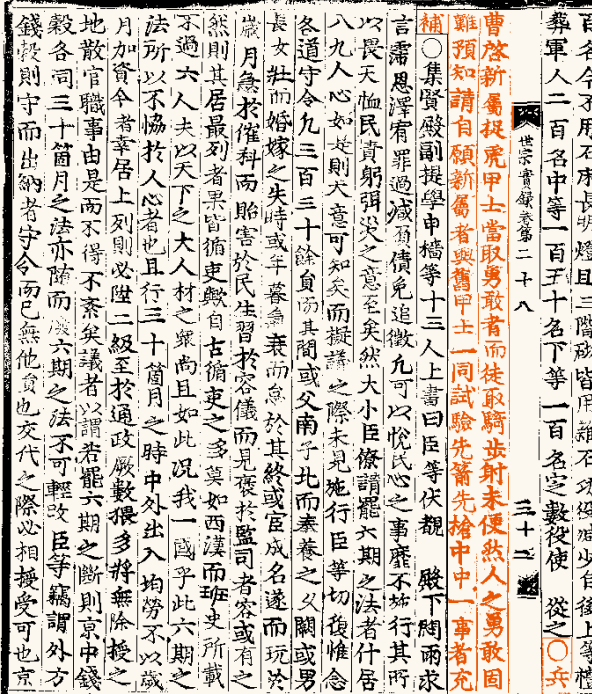 葬軍人二百名中等一百五十名下等一百名定數役使 從之○兵
世宗實錄卷第二十八 三十二
曹啓新屬捉虎甲士當取勇敢者而徒取騎步射未便然人之勇敢固
難預知請自願新屬者與舊甲士一同試驗先箭先槍中中一事者充
補○集賢殿副提學申檣等十三人上書曰臣等伏覩 殿下閔雨求
言霈恩澤宥罪過減債免追徵凡可以悅民心之事靡不施行其所
以畏天恤民責躬弭災之意至矣然大小臣僚請罷六期之法者什居
八九人心如此則天意可知矣而擬議之際未見施行臣等切復惟念
各道守令凡三百三十餘員而其間或父南子北而素養之久闕或男
長女壯而婚嫁之失時或年暮氣衰而怠於其終或宦成名遂而玩於
歲月兼於催科而貽害於民生習於容儀而見褒於監司者容或有之
然則其居最列者果皆循吏歟自古循吏之多莫如西漢而班史所載
不過六人夫以天下之大人材之衆尚且如此况我一國乎此六期之
法所以不恊於人心者也且行三十箇月之時中外出入均勞不以歲
月加資今者幸居上列則必陞二級至於通政厥數猥多將無除授之
地散官職事由是而不得不紊矣議者以謂若罷六期之斷則京中錢
穀各司三十箇月之法亦隨而廢六期之法不可輕改臣等竊謂外方
錢穀則守而出納者守令而已無他員也交代之際必相授受可也京